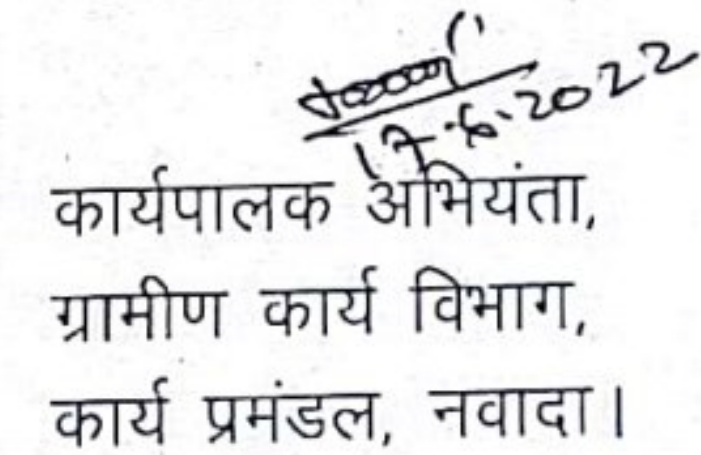 17.6.2022
कार्यपालक अभियंता,
ग्रामीण कार्य विभाग,
कार्य प्रमंडल, नवादा।